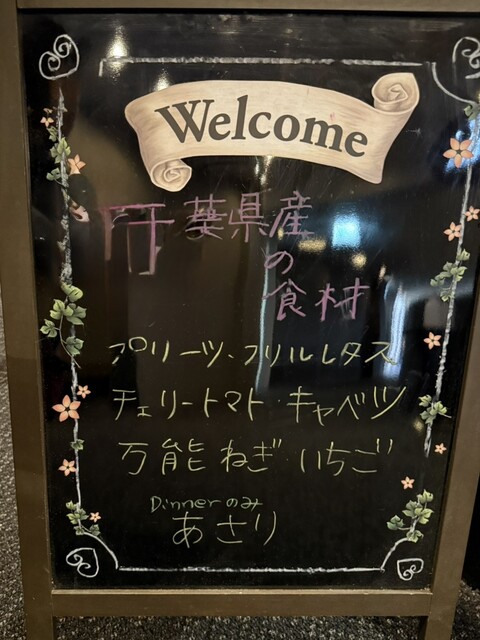 Welcome
千葉県産
の
食材
プリーツ・フリルレタス
チェリートマト・キャベツ
万能ねぎ・いちご
Dinnerのみ
あさり